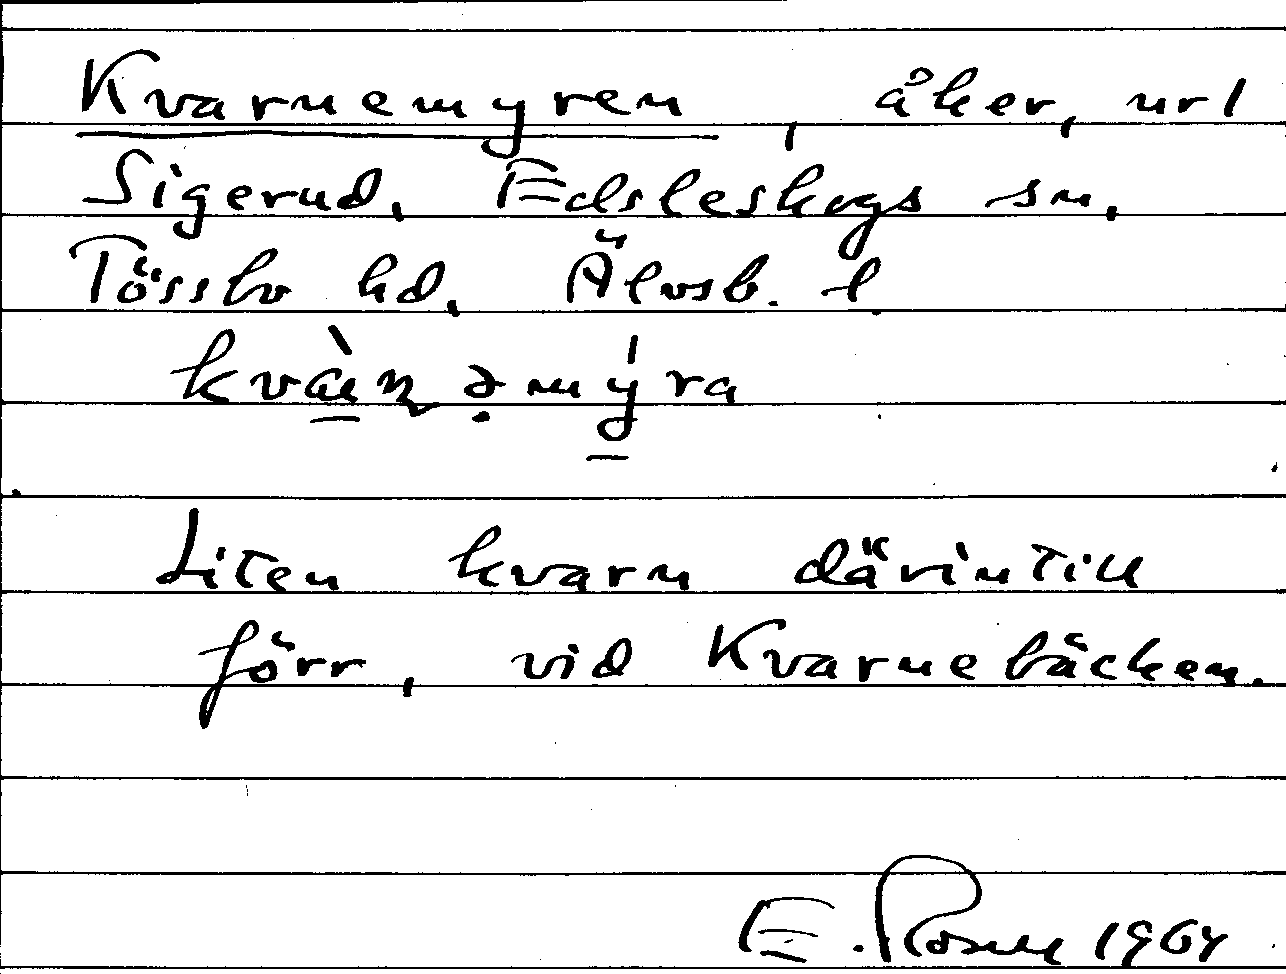 Kvarnemyren, åker, nr 1
Sigerud, Edsleskogs sn,
Tössbo hd, Älvsb. l
kvæ̀ɳəmýra
Liten kvarn därintill
förr, vid Kvarnebäcken.
E. Rosell 1964